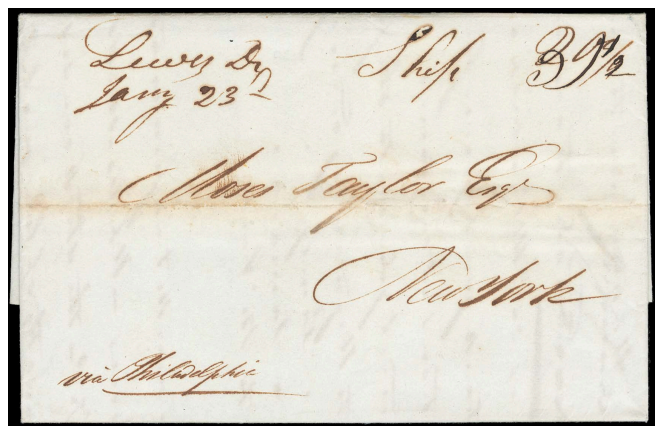 Lewes De
Jany 23d
Ship
Moses Taylor Esqr
New York
via Philadelphia